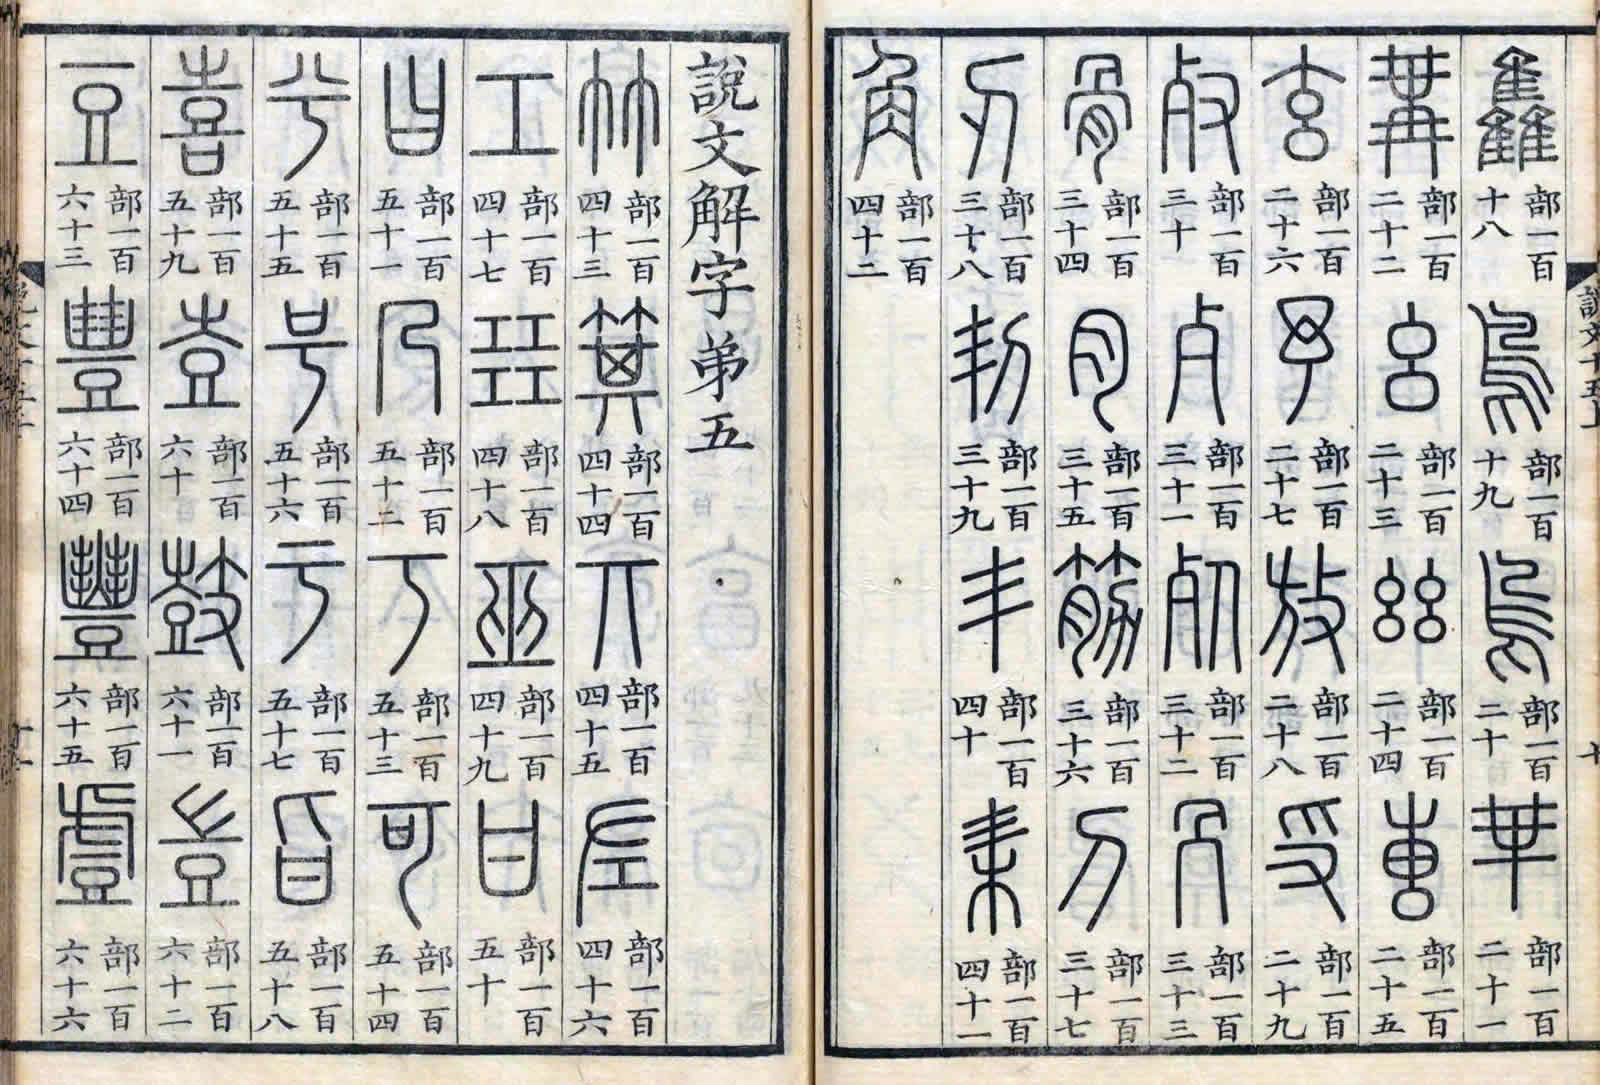 說文十五上 十
雥部一百十八 鳥部一百十九 烏部一百二十 𠦒部一百二十一
冓部一百二十二 幺部一百二十三 𢆶部一百二十四 叀部一百二十五
玄部一百二十六 予部一百二十七 放部一百二十八 𠬪部一百二十九
𣦼部一百三十 歺部一百三十一 死部一百三十二 冎部一百三十三
骨部一百三十四 肉部一百三十五 筋部一百三十六 刀部一百三十七
刃部一百三十八 㓞部一百三十九 丯部一百四十 耒部一百四十一
角部一百四十二
說文解字弟五
竹部一百四十三 箕部一百四十四 丌部一百四十五 左部一百四十六
工部一百四十七 㠭部一百四十八 巫部一百四十九 甘部一百五十
曰部一百五十一 乃部一百五十二 丂部一百五十三 可部一百五十四
兮部一百五十五 号部一百五十六 亏部一百五十七 旨部一百五十八
喜部一百五十九 壴部一百六十 鼓部一百六十一 豈部一百六十二
豆部一百六十三 豊部一百六十四 豐部一百六十五 䖒部一百六十六